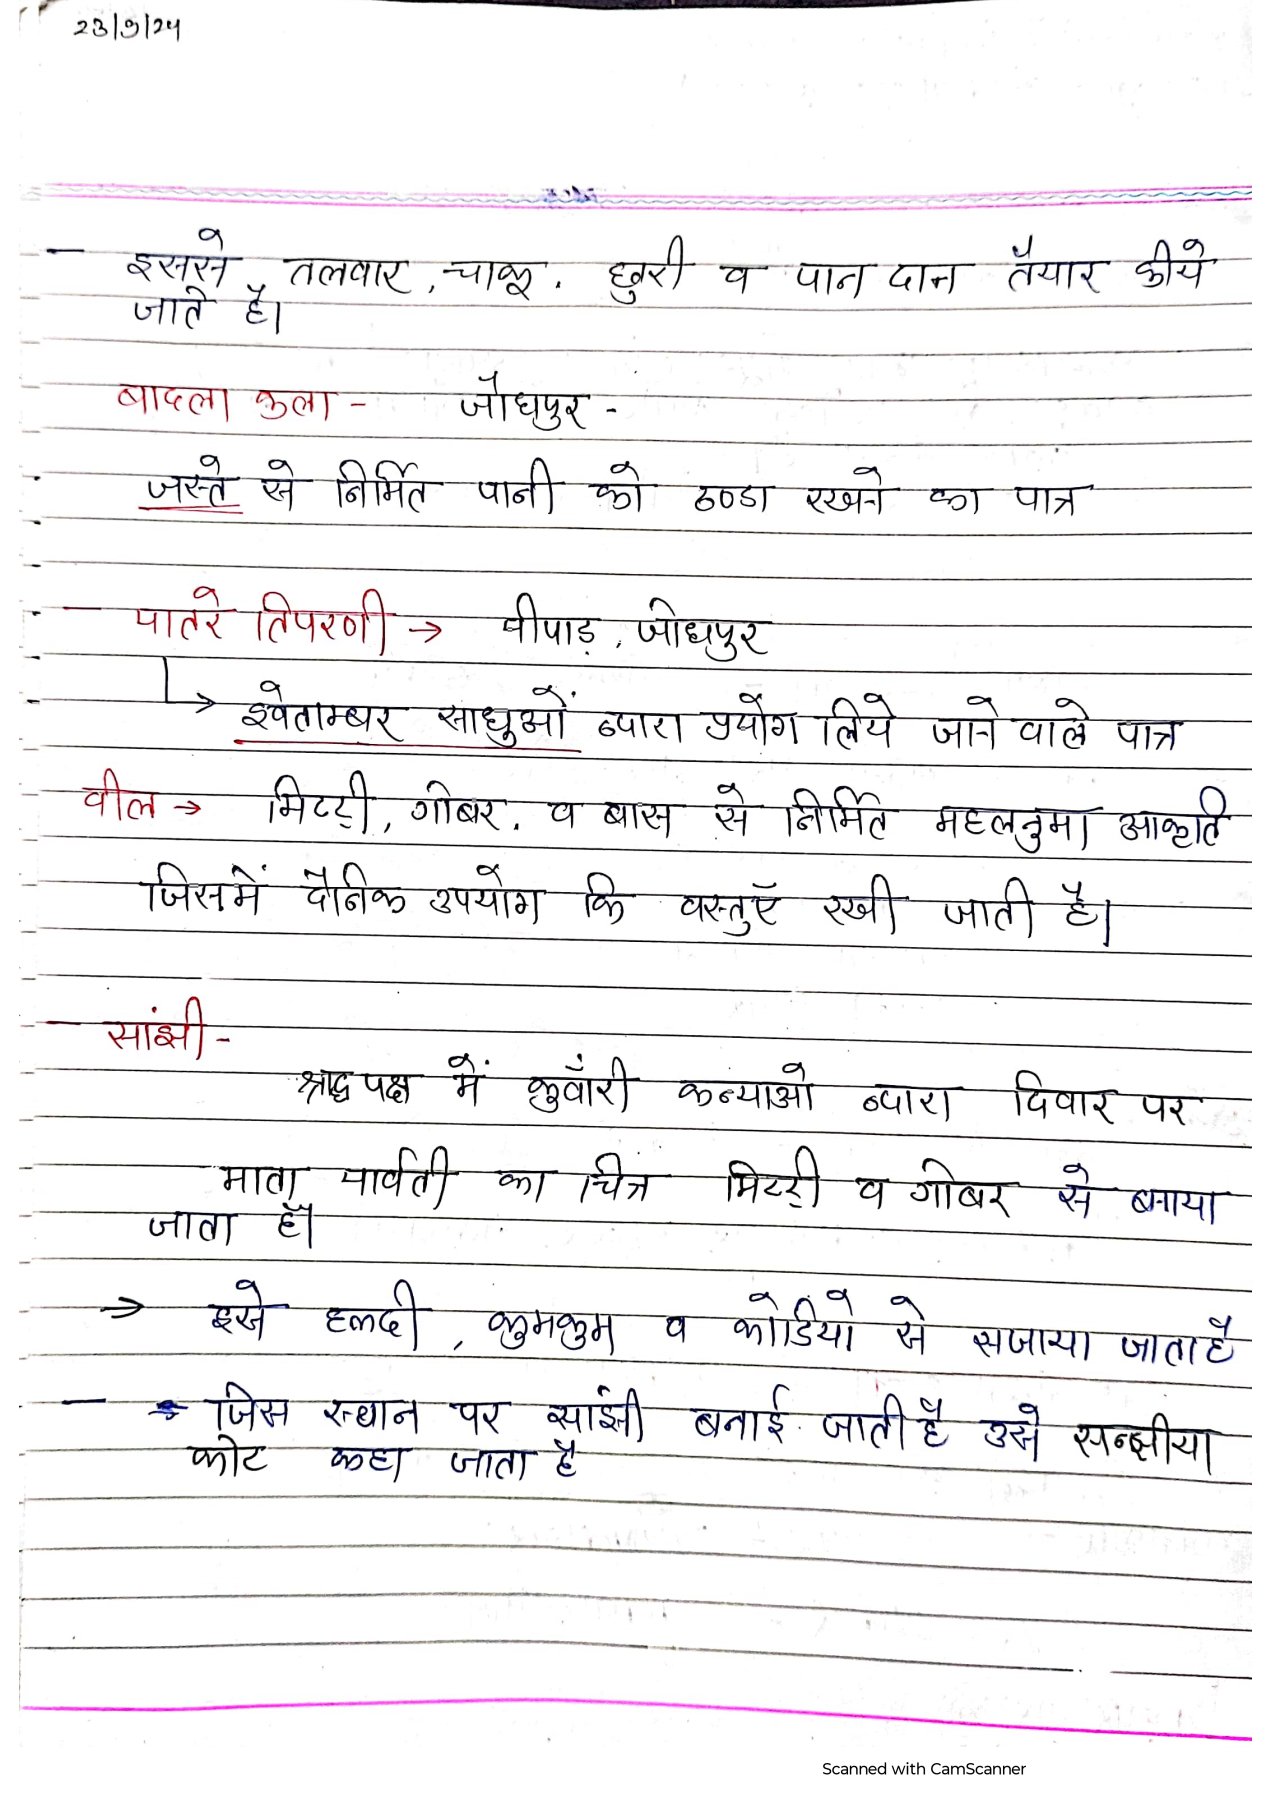 23/9/24
इससे, तलवार, चाकू, छुरी व पान दान तैयार कीये
जाते है।
बादला कला - जोधपुर -
जस्ते से निर्मित पानी को ठण्डा रखने का पात्र
पातरे तिपरणी → पीपाड़, जोधपुर
→ श्वेताम्बर साधुओं व्दारा प्रयोग लिये जाने वाले पात्र
वील → मिट्टी, गोबर, व बास से निर्मित महलनुमा आकृति
जिसमें दैनिक उपयोग कि वस्तुएँ रखी जाती है।
सांझी -
श्राद्ध पक्ष में कुवाँरी कन्याओ व्दारा दिवार पर
माता पार्वती का चित्र मिट्टी व गोबर से बनाया
जाता है।
→ इसे हल्दी, कुमकुम व कोडियो से सजाया जाता है
→ जिस स्थान पर सांझी बनाई जाती है उसे सन्झीया
कोट कहा जाता है
Scanned with CamScanner